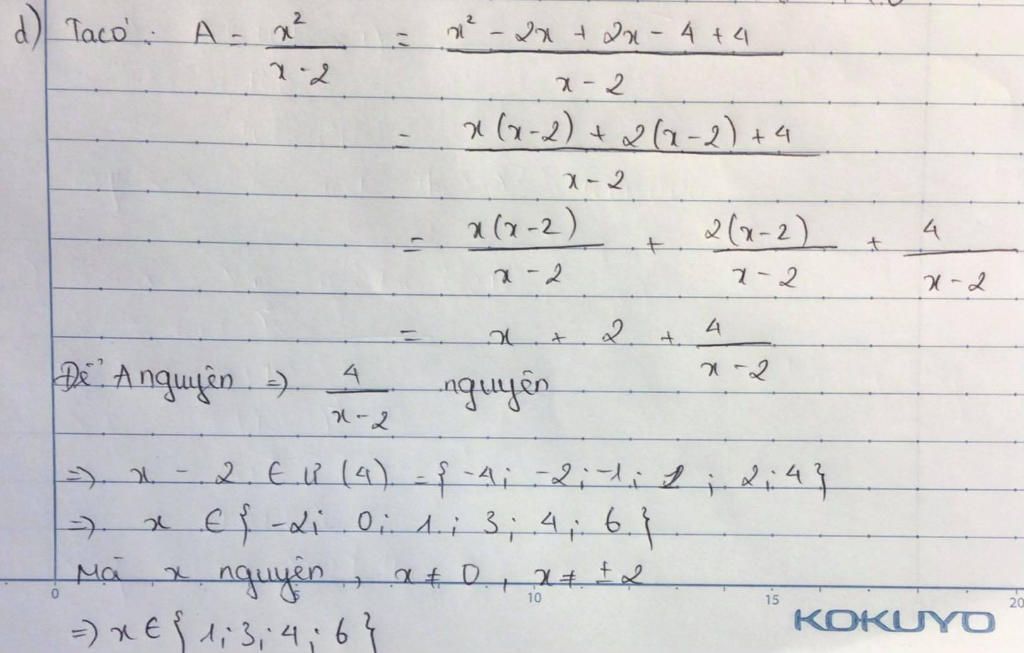 d) Ta có: A = x²/(x-2) = (x² - 2x + 2x - 4 + 4)/(x - 2)
= (x(x-2) + 2(x-2) + 4)/(x - 2)
= x(x-2)/(x-2) + 2(x-2)/(x-2) + 4/(x-2)
= x + 2 + 4/(x-2)
Để A nguyên => 4/(x-2) nguyên
=> x - 2 ∈ Ư (4) = {-4; -2; -1; 1; 2; 4}
=> x ∈ {-2; 0; 1; 3; 4; 6}
Mà x nguyên, x ≠ 0, x ≠ ±2
0 5 10 15 20
KOKUYO
=> x ∈ {1; 3; 4; 6}